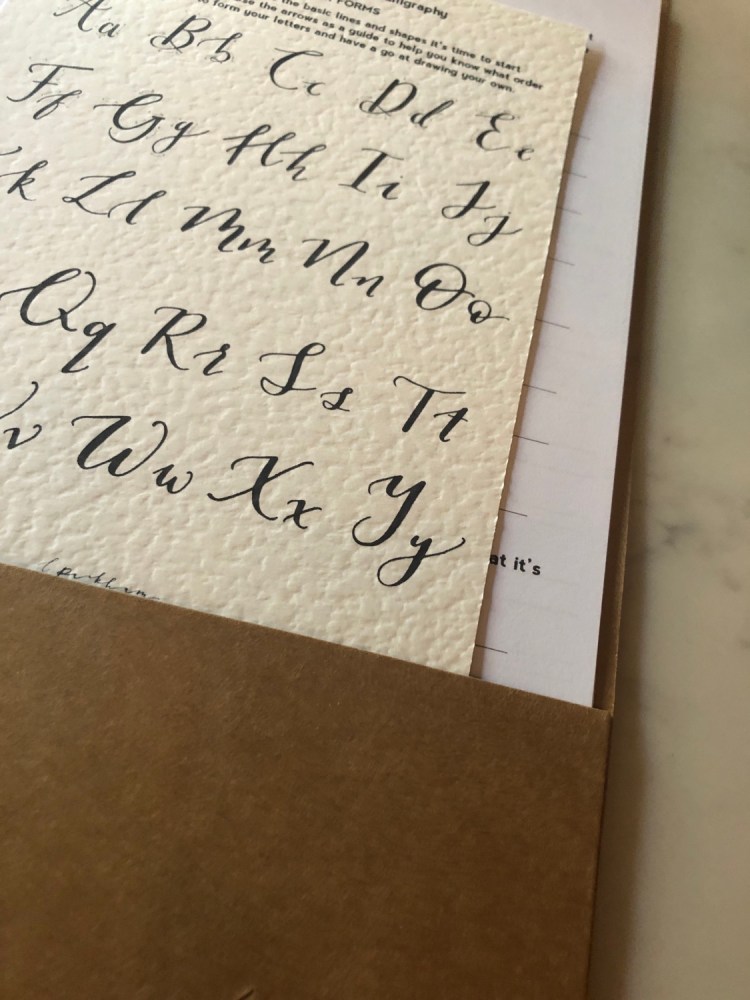 FORMS
the basic lines and shapes it's time to start
the arrows as a guide to help you know what order
to form your letters and have a go at drawing your own.
Aa Bb Cc Dd Ee
Ff Gg Hh Ii Jj
k Ll Mm Nn Oo
Qq Rr Ss Tt
v Ww Xx Yy
at it's